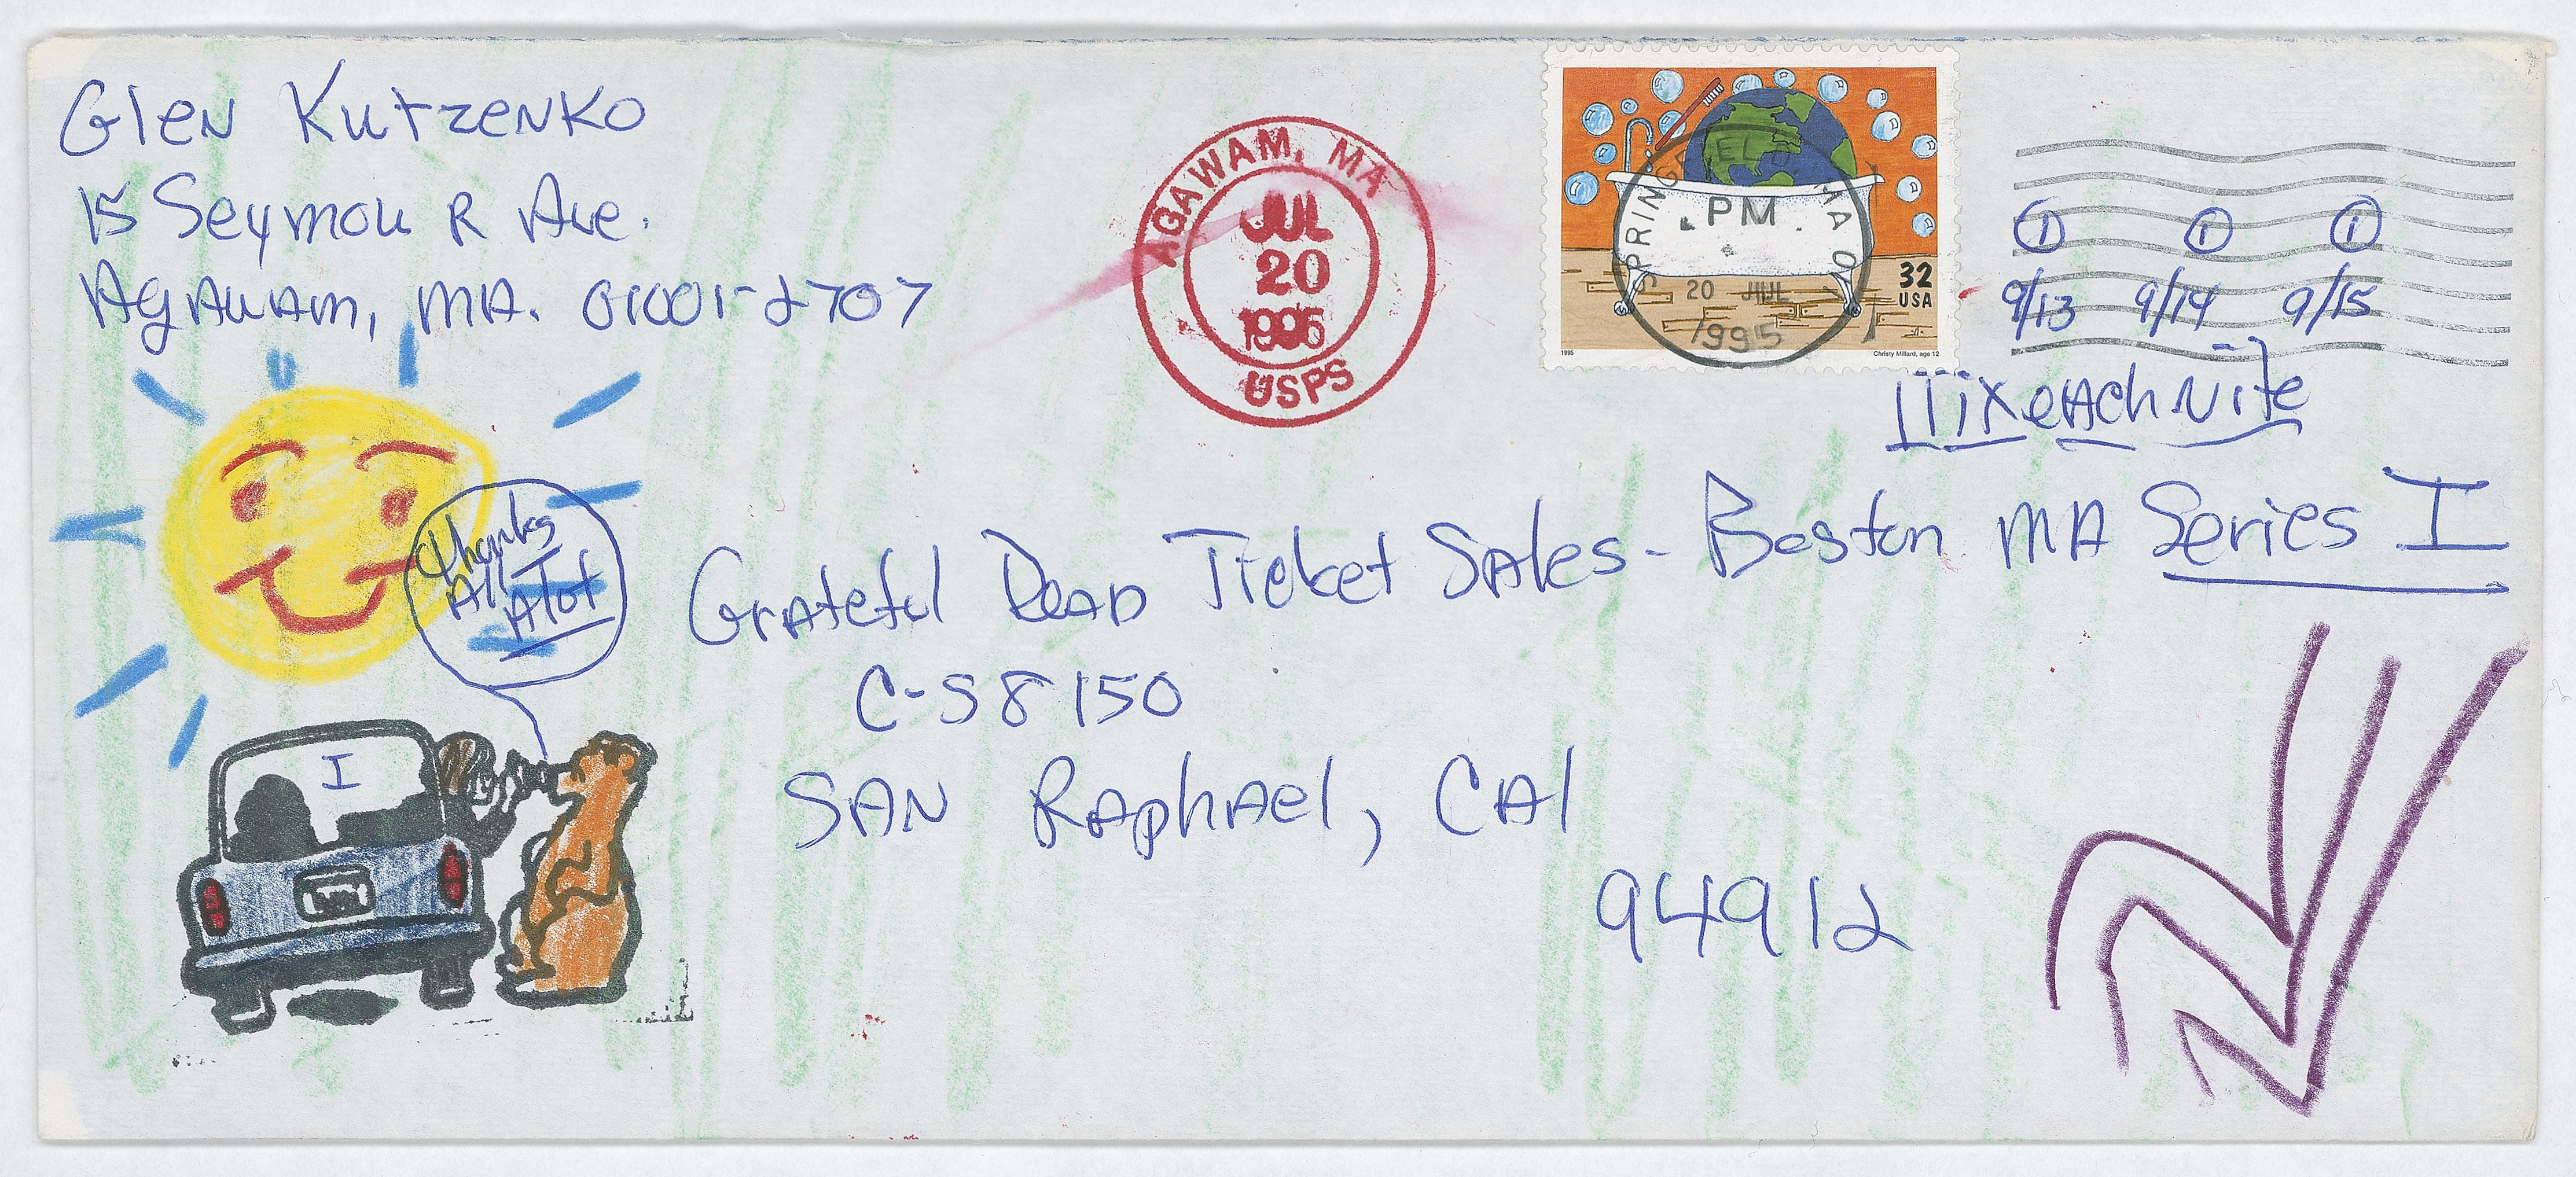 Glen Kutzenko
15 Seymour Ave.
Agawam, MA. 01001-2707
AGAWAM, MA
JUL
20
1995
USPS
SPRINGFIELD MA 0
PM
20 JUL
1995
32
USA
1995
Christy Millard, age 12
1 1 1
9/13 9/14 9/15
1 Tix each Nite
Thanks
All
Alot
Grateful Dead Ticket Sales - Boston MA Series I
C-S 8150
San Raphael, Cal
94912
I